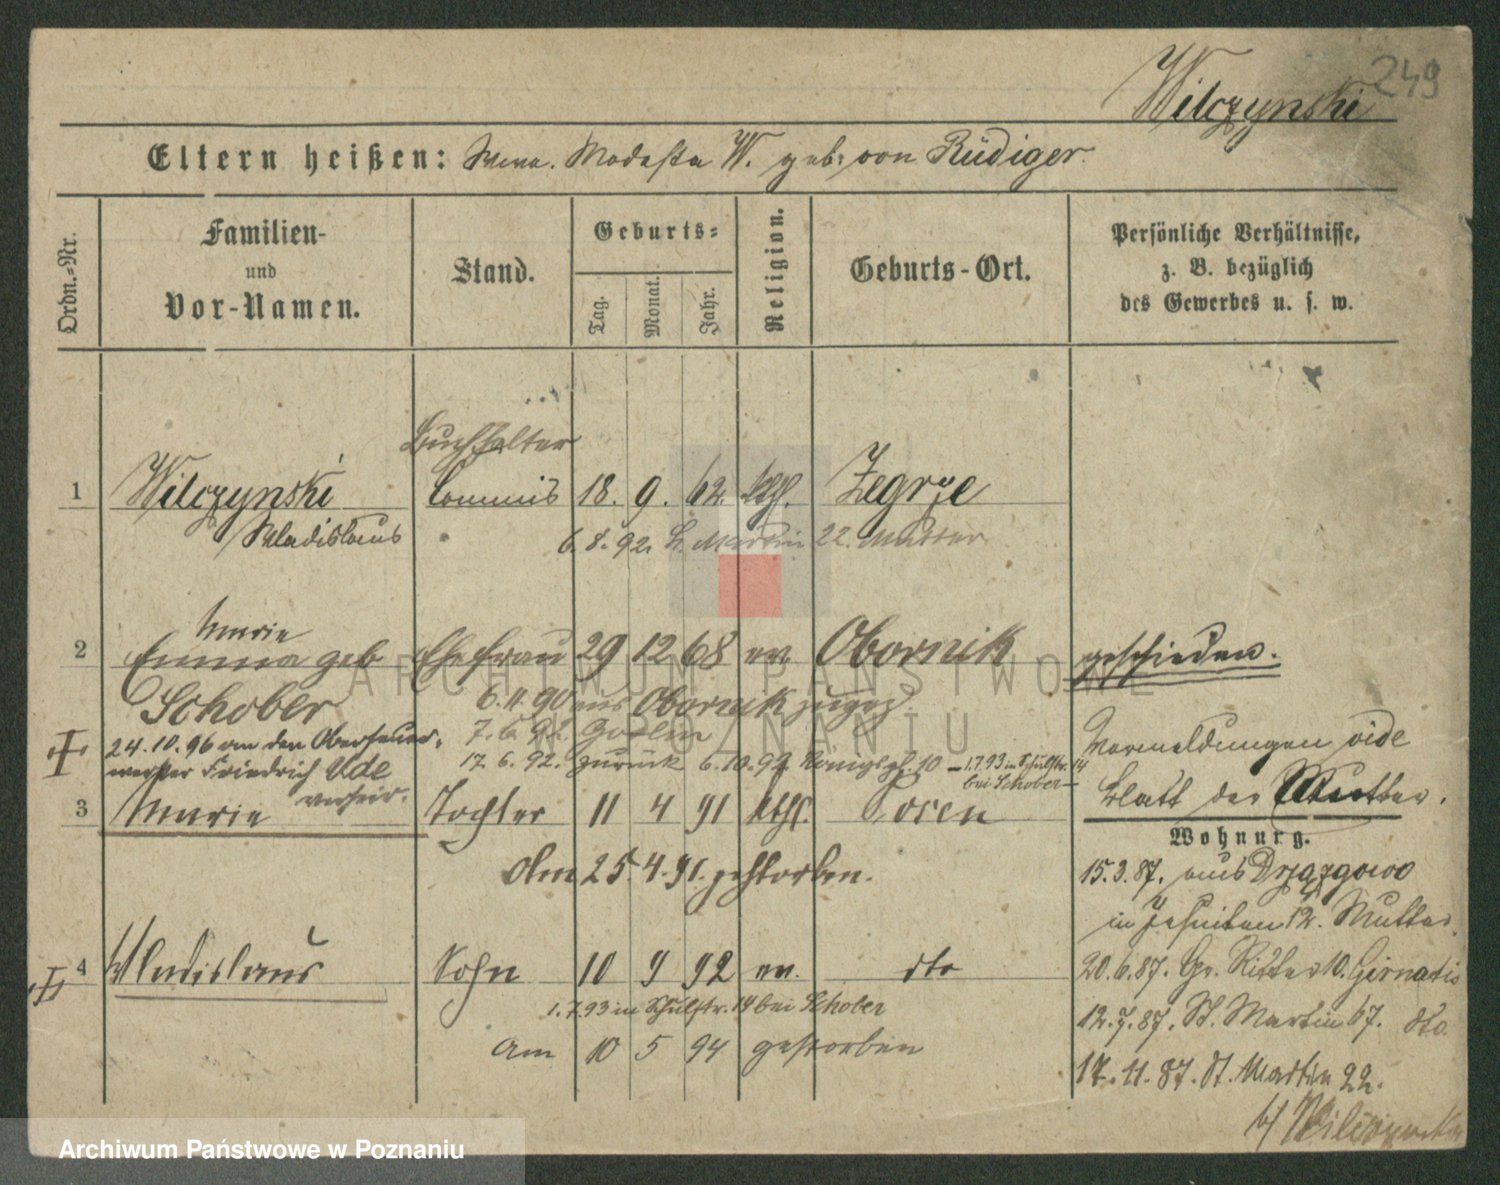 249
Wilczynski
Eltern heißen: Wwe. Modesta W. geb. von Rüdiger.
Ordn.-Nr.
Familien-
und
Vor-Namen.
Stand.
Geburts-
Tag.
Monat.
Jahr.
Religion.
Geburts-Ort.
Persönliche Verhältnisse,
z. B. bezüglich
des Gewerbes u. s. w.
Buchhalter
1 Wilczynski Commis 18. 9. 62 kth. Zegrze
Wladislaus 6.8.92. St. Martin 22. Mutter
Marie
2 Emma geb Ehefrau 29 12 68 ev. Obornik geschieden.
Schober 6.11.90 aus Obornik zugez.
7.6.92.
24.10.96 an den Oberfeuer-
17.6.92. zurück 6.10.92 Königspl. 10 – 1.7.93 in Schulstr. 14
werker Friedrich Ude bei Schober –
verheir.
Vormeldungen vide
Blatt der Mutter.
3 Marie Tochter 11 4 91 kth. Posen
Am 25.4.91. gestorben.
Wohnung.
15.3.87. aus Drzązgowo
in Jesuiten 12. Mutter.
20.6.87. Gr. Ritter 10.
12.7.87. St. Martin 67. dto.
17.11.87. St. Martin 22.
b/ Wilczynska
4 Wladislaus Sohn 10 9 92 ev. dto
1.7.93 in Schulstr. 14 bei Schober
am 10 5 94 gestorben
ARCHIWUM PAŃSTWOWE
W POZNANIU
Archiwum Państwowe w Poznaniu